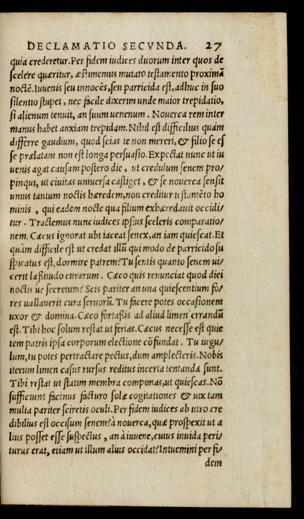 DECLAMATIO SECVNDA. 27
quia crederetur. Per fidem iudices duorum inter quos de
scelere quæritur, æstimemus mutato testamento proximã
noctē. Iuuenis seu innocēs, seu parricida est, adhuc in suo
silentio stupet, nec facile dixerim unde maior trepidatio,
si alienum tenuit, an suum uenenum. Nouerca rem inter
manus habet anxiam trepidam. Nihil est difficilius quàm
differre gaudium, quod scias te non mereri, & filio se es
se prælatam non est longa persuasio. Expectat nunc ut iu
uenis agat causam postero die, ut credulum senem pro/
pinqui, ut ciuitas uniuersa castiget, & se nouerca sensit
unius tantum noctis hæredem, non creditur testamēto ho
minis, qui eadem nocte qua filium exhæredauit occidi/
tur. Tractemus nunc iudices ipsius sceleris comparatio/
nem. Cæcus ignorat ubi iaceat senex, an iam quiescat. Et
quàm difficile est ut credat illū qui modo de parricido su
spicatus est, dormire patrem? Tu sentis quanto senem ui/
cerit lassitudo curarum. Cæco quis renunciat quod diei
noctis ue secretum? Scis pariter an una quiescentium fo/
res uallauerit cura seruorū. Tu facere potes occasionem
uxor & domina. Cæco fortassis ad aliud limen errandū
est. Tibi hoc solum restat ut ferias. Cæcus necesse est quie
tem patris ipsa corporum electione cōfundat. Tu iugu/
lum, tu potes pertractare pectus, dum amplecteris. Nobis
iterum limen casus rursus reditus incerta tentanda sunt.
Tibi restat ut statim membra componas, ut quiescas. Nō
sufficiunt facinus facturo solæ cogitationes & uix tam
multa pariter sciretis oculi. Per fidem iudices ab utro cre
dibilius est occisum senem? à nouerca, quæ prospexit ut a
lius posset esse suspectus, an à iuuene, cuius inuidia peri/
turus erat, etiam ut illum alius occidat? Intuemini per fi/
dem